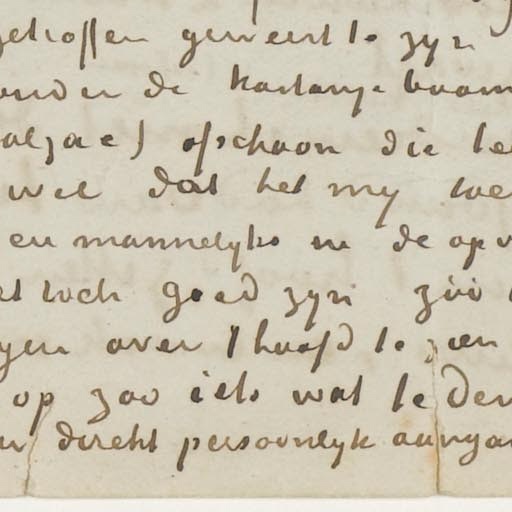 getroffen geweest te zyn
onder de kastanje boom
Balzac) ofschoon die te
wel dat het my toe
en mannelyks in de op
toch goed zyn zóó
over 't hoofd te zien
op zoo iets wat te den
direkt persoonlyk aangaa